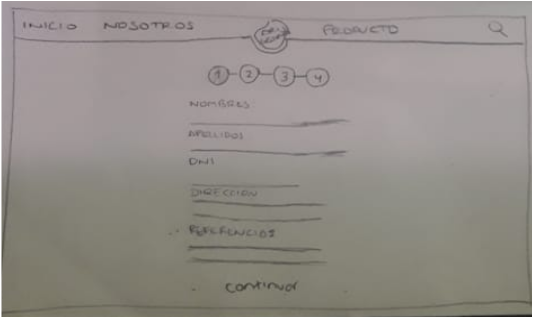 INICIO NOSOTROS PRODUCTO
1 2 3 4
NOMBRES
APELLIDOS
DNI
DIRECCION
REFERENCIAS
continuar